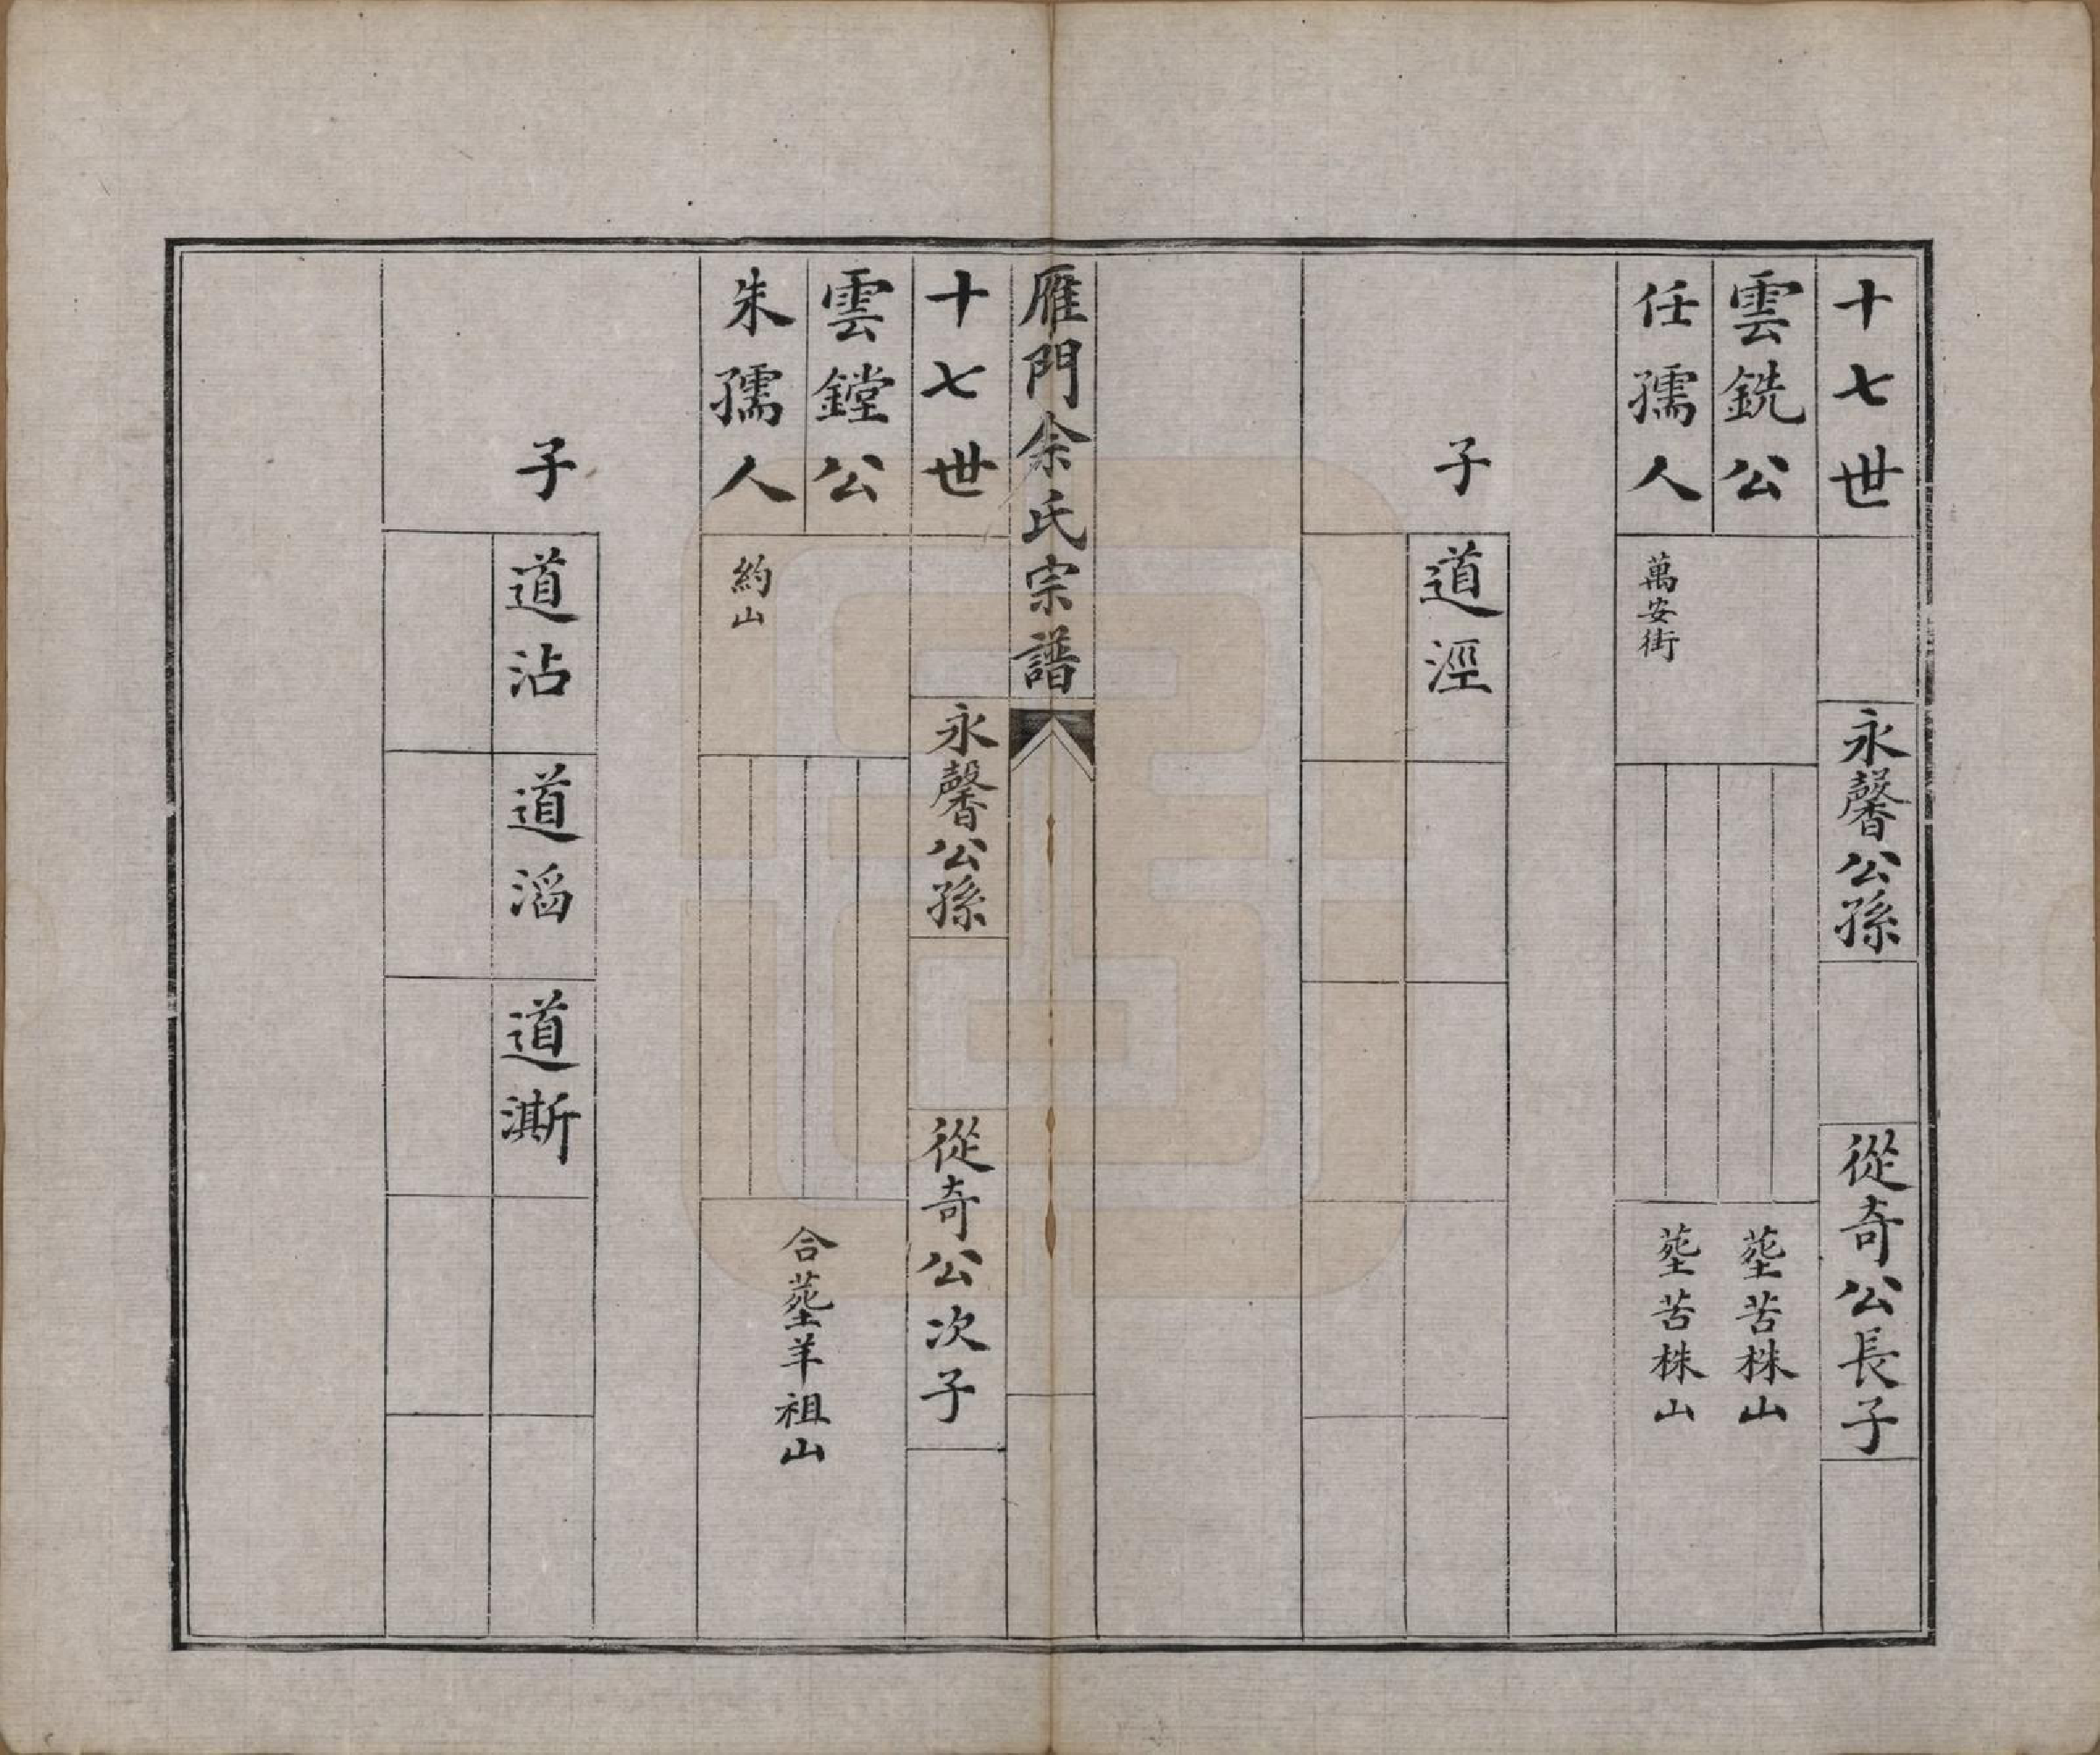 十七世
永馨公孫
從奇公長子
雲銑公
任孺人
萬安街
塟苦株山
塟苦株山
子
道涇
雁門余氏宗譜
十七世
永馨公孫
從奇公次子
雲鏜公
朱孺人
約山
合塟羊祖山
子
道沾
道滔
道澌